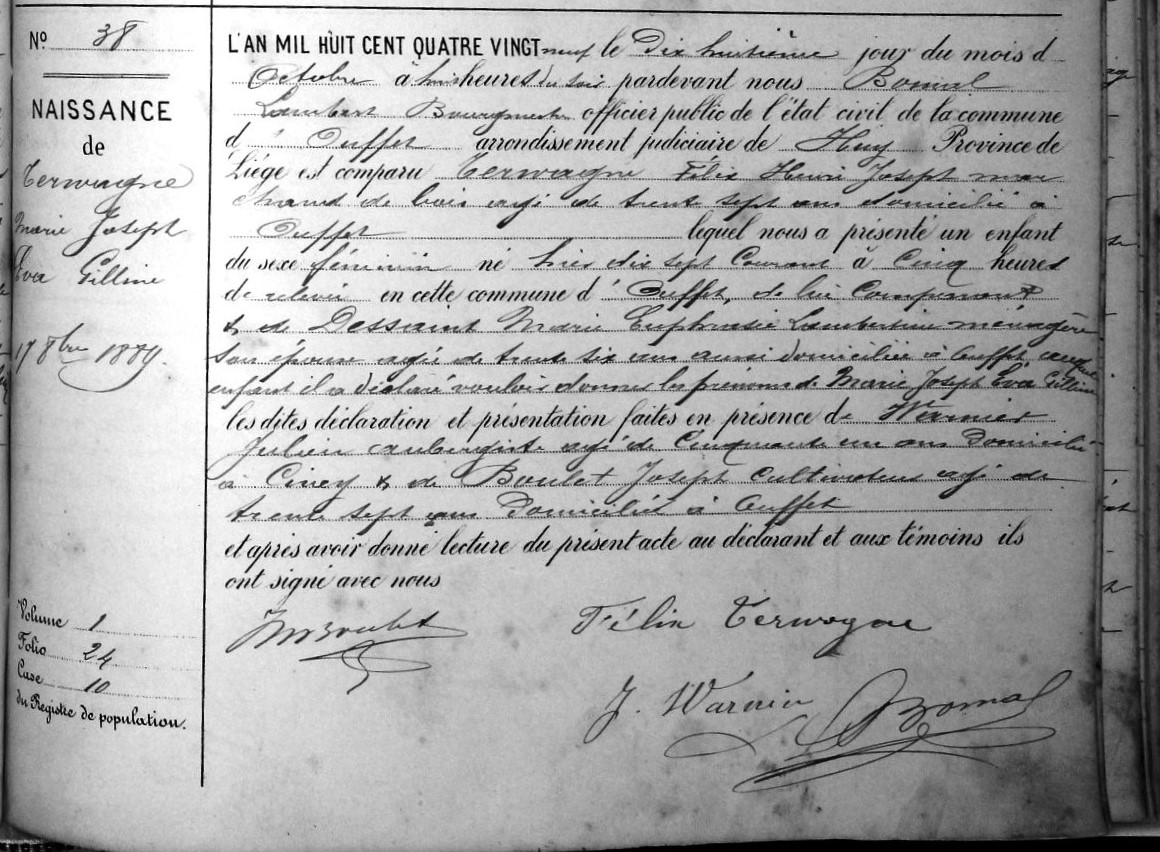 N° 38
NAISSANCE
de
Terwagne
Marie Joseph
Eva Gilline
17 8bre 1889.
Volume 1
Folio 24
Case 10
du Registre de population.
L'AN MIL HUIT CENT QUATRE VINGT neuf le Dix huitième jour du mois d
Octobre à huit heures du soir pardevant nous Bomal
Lambert Bourgmestre officier public de l'état civil de la commune
d' Ouffet arrondissement judiciaire de Huy Province de
Liége est comparu Terwagne Félix Henri Joseph mar
chand de bois agé de trente sept ans domicilié à
Ouffet lequel nous a présenté un enfant
du sexe féminin né hier dix sept Courant à Cinq heures
de relevée en cette commune d' Ouffet, de lui Comparant
& de Dessaint Marie Euphrasie Lambertine ménagère
son épouse agée de trente six ans aussi domiciliée à Ouffet auquel
enfant il a déclaré vouloir donner les prénoms de Marie Joseph Eva Gilline
les dites déclaration et présentation faites en présence de Warnier
Julien aubergiste agé de Cinquante un ans Domicilié
à Ciney & de Boulet Joseph Cultivateur agé de
trente sept ans Domicilié à Ouffet
et après avoir donné lecture du présent acte au déclarant et aux témoins ils
ont signé avec nous
Boulet
Félix Terwagne
J. Warnier
Bomal